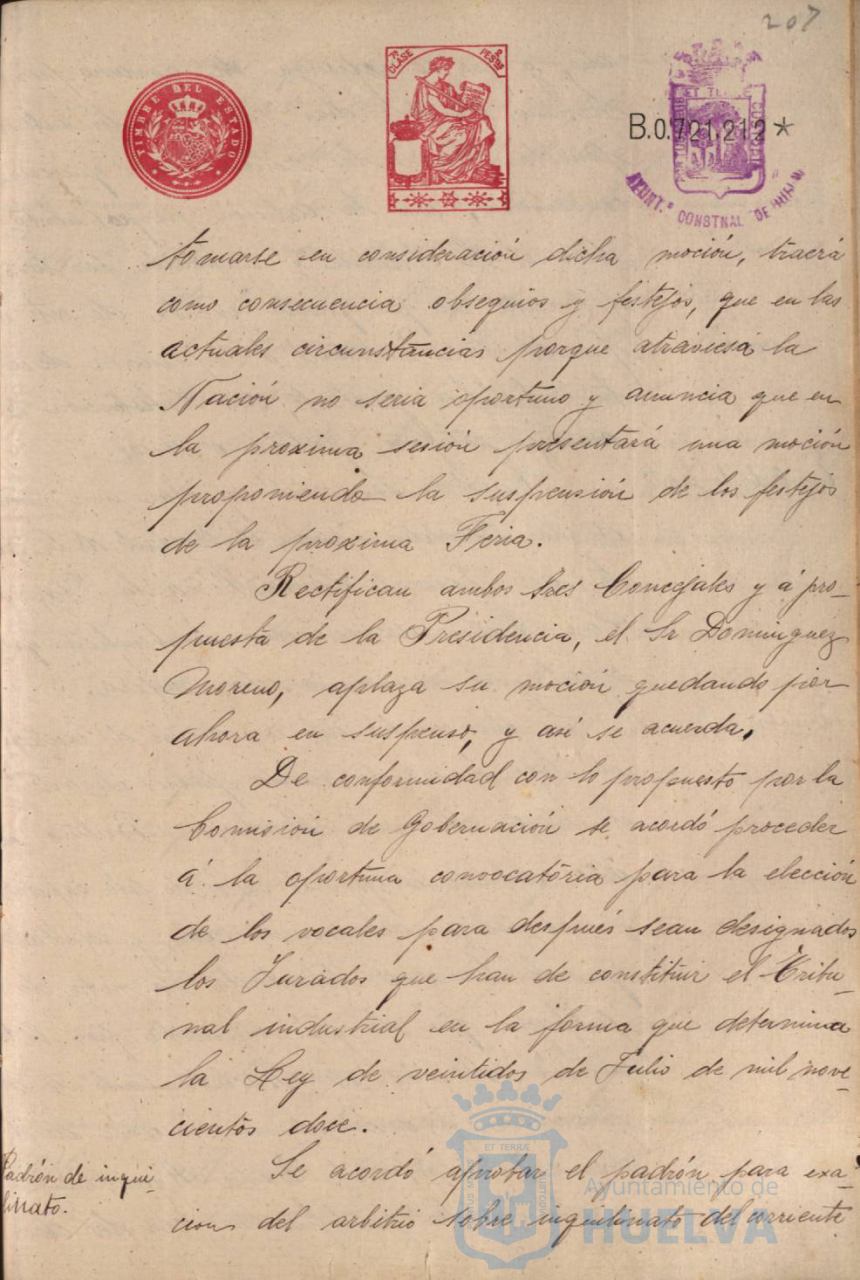 207
TIMBRE DEL ESTADO
7ª CLASE PESTAS
B.0.721.212*
ET TERRÆ
AYUNT.º CONSTNAL DE
tomarse en consideración dicha moción, traerá
como consecuencia obsequios y festejos, que en las
actuales circunstancias porque atraviesa la
Nación no seria oportuno y anuncia que en
la proxima sesión presentará una moción
proponiendo la suspensión de los festejos
de la proxima Feria.
Rectifican ambos Sres Concejales y á pro-
puesta de la Presidencia, el Sr Dominguez
Moreno, aplaza su moción quedando por
ahora en suspenso, y asi se acuerda.
De conformidad con lo propuesto por la
Comisión de Gobernación se acordó proceder
á la oportuna convocatória para la elección
de los vocales para después sean designados
los Jurados que han de constituir el Tribu-
nal industrial en la forma que determina
la Ley de veintidos de Julio de mil nove-
cientos doce.
Padrón de inqui-
linato.
Se acordó aprobar el padrón para exa-
cion del arbitrio sobre inquilinato del corriente
ET TERRÆ
Ayuntamiento de
HUELVA